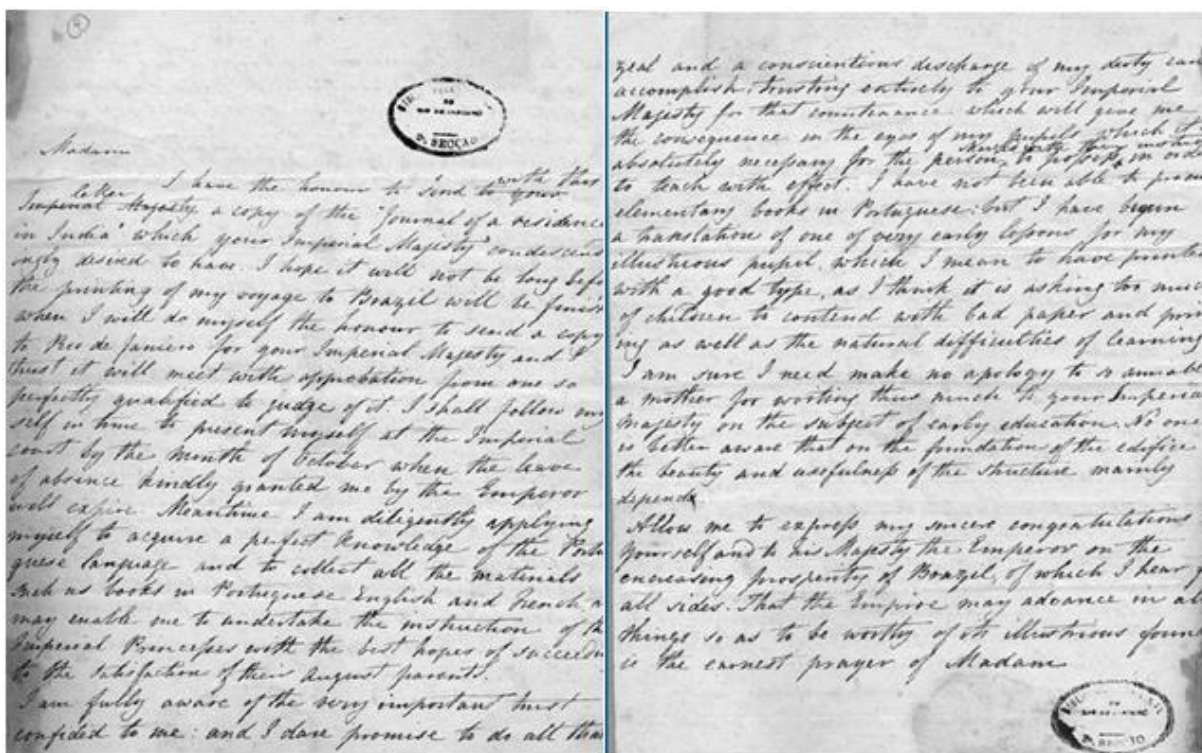 Madam
I have the honour to send to with this
letter your
Imperial Majesty a copy of the "Journal of a residence
in India" which your Imperial Majesty condescend
ingly desired to have. I hope it will not be long befo
the printing of my voyage to Brazil will be finish
when I will do myself the honour to send a copy
to Rio de Janiero for your Imperial Majesty and I
trust it will meet with approbation from one so
perfectly qualified to judge of it. I shall follow my
self in time to present myself at the Imperial
court by the month of October when the leave
of absence kindly granted me by the Emperor
will expire. Meantime I am diligently applying
myself to acquire a perfect knowledge of the Portu
guese language and to collect all the materials
such as books in Portuguese English and French, a
may enable me to undertake the instruction of th
Imperial Princesses with the best hopes of succes
to the satisfaction of their august parents.
I am fully aware of the very important trust
confided to me: and I dare promise to do all that
zeal and a conscientious discharge of my duty can
accomplish: trusting entirely to your Imperial
Majesty for that countenance which will give me
the consequence in the eyes of my pupils which it
absolutely necessary for the person to possess in ord
to teach with effect. I have not been able to
elementary books in Portuguese: but I have begun
a translation of one of very early lessons for my
illustrious pupil, which I mean to have printed
with a good type, as I think it is asking too much
of children to contend with bad paper and prin
ing as well as the natural difficulties of learning
I am sure I need make no apology to so amiabl
a mother for writing thus much to your Imperia
Majesty on the subject of early education. No one
is better aware that on the foundation of the edifice
the beauty and usefulness of the structure mainly
depends
Allow me to express my sincere congratulations
yourself and to his Majesty the Emperor on the
encreasing prosperity of Brazil, of which I hear
all sides. That the Empire may advance in al
things so as to be worthy of its illustrious foun
is the earnest prayer of Madam
RIO DE JANEIRO